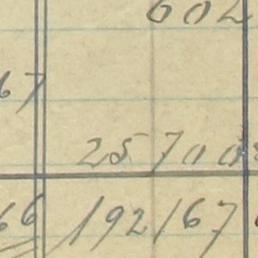 602
67
25700
66 192167